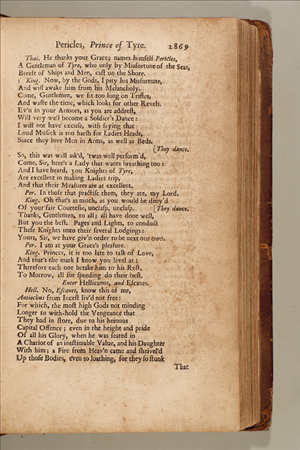 Pericles, Prince of Tyre. 2869
Thai. He thanks your Grace; names himself Pericles,
A Gentleman of Tyre, who only by Misfortune of the Seas,
Bereft of Ships and Men, cast on the Shore.
King. Now, by the Gods, I pity his Misfortune,
And will awake him from his Melancholy.
Come, Gentlemen, we sit too long on Trifles,
And waste the time, which looks for other Revels.
Ev'n in your Armors, as you are addrest,
Will very well become a Soldier's Dance:
I will not have excuse, with saying that
Loud Musick is too harsh for Ladies Heads,
Since they love Men in Arms, as well as Beds.
[They dance.
So, this was well ask'd, 'twas well perform'd,
Come, Sir, here's a Lady that wants breathing too:
And I have heard, you Knights of Tyre,
Are excellent in making Ladies trip,
And that their Measures are as excellent.
Per. In those that practise them, they are, my Lord.
King. Oh that's as much, as you would be deny'd
Of your fair Courtesie, unclasp, unclasp. [They dance.
Thanks, Gentlemen, to all; all have done well,
But you the best. Pages and Lights, to conduct
These Knights unto their several Lodgings:
Yours, Sir, we have giv'n order to be next our own.
Per. I am at your Grace's pleasure.
King. Princes, it is too late to talk of Love,
And that's the mark I know you level at:
Therefore each one betake him to his Rest,
To Morrow, all for speeding do their best.
Enter Hellicanus, and Escanes.
Hell. No, Escanes, know this of me,
Antiochus from Incest liv'd not free:
For which, the most high Gods not minding
Longer to with-hold the Vengeance that
They had in store, due to his heinous
Capital Offence; even in the height and pride
Of all his Glory, when he was seated in
A Chariot of an inestimable Value, and his Daughter
With him; a Fire from Heav'n came and shrivel'd
Up those Bodies, even to loathing, for they so stunk
That